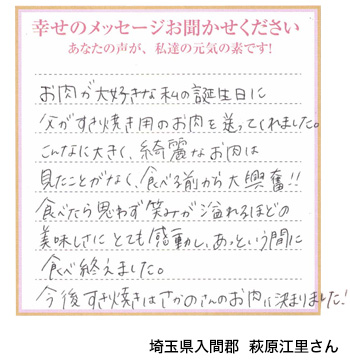 幸せのメッセージお聞かせください
あなたの声が、私達の元気の素です!
お肉が大好きな私の誕生日に
父がすき焼き用のお肉を送ってくれました。
こんなに大きく、綺麗なお肉は
見たことがなく、食べる前から大興奮!!
食べたら思わず笑みが溢れるほどの
美味しさにとても感動し、あっという間に
食べ終えました。
今後すき焼きはさかのさんのお肉に決まりました!
埼玉県入間郡 萩原江里さん